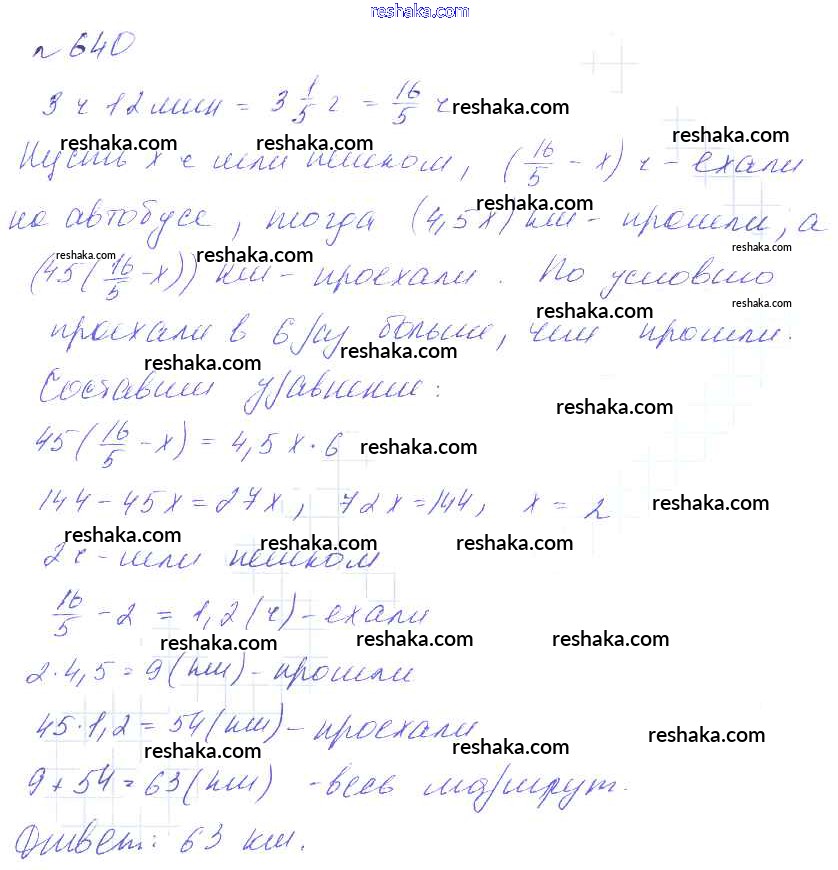 reshaka.com
№ 640
3 ч 12 мин = 3 1/5 ч = 16/5 ч reshaka.com
reshaka.com reshaka.com reshaka.com
Пусть x ч шли пешком, (16/5 - x) ч - ехали
reshaka.com
на автобусе, тогда (4,5x) км - прошли, а
reshaka.com reshaka.com reshaka.com
(45(16/5 - x)) км - проехали. По условию
reshaka.com reshaka.com
проехали в 6 раз больше, чем прошли.
reshaka.com reshaka.com
Составим уравнение:
reshaka.com
45(16/5 - x) = 4,5x · 6 reshaka.com
144 - 45x = 27x, 72x = 144, x = 2 reshaka.com
reshaka.com reshaka.com reshaka.com
2 ч - шли пешком
16/5 - 2 = 1,2 (ч) - ехали
reshaka.com reshaka.com reshaka.com
2 · 4,5 = 9 (км) - прошли
45 · 1,2 = 54 (км) - проехали
reshaka.com reshaka.com reshaka.com
9 + 54 = 63 (км) - весь маршрут.
Ответ: 63 км.